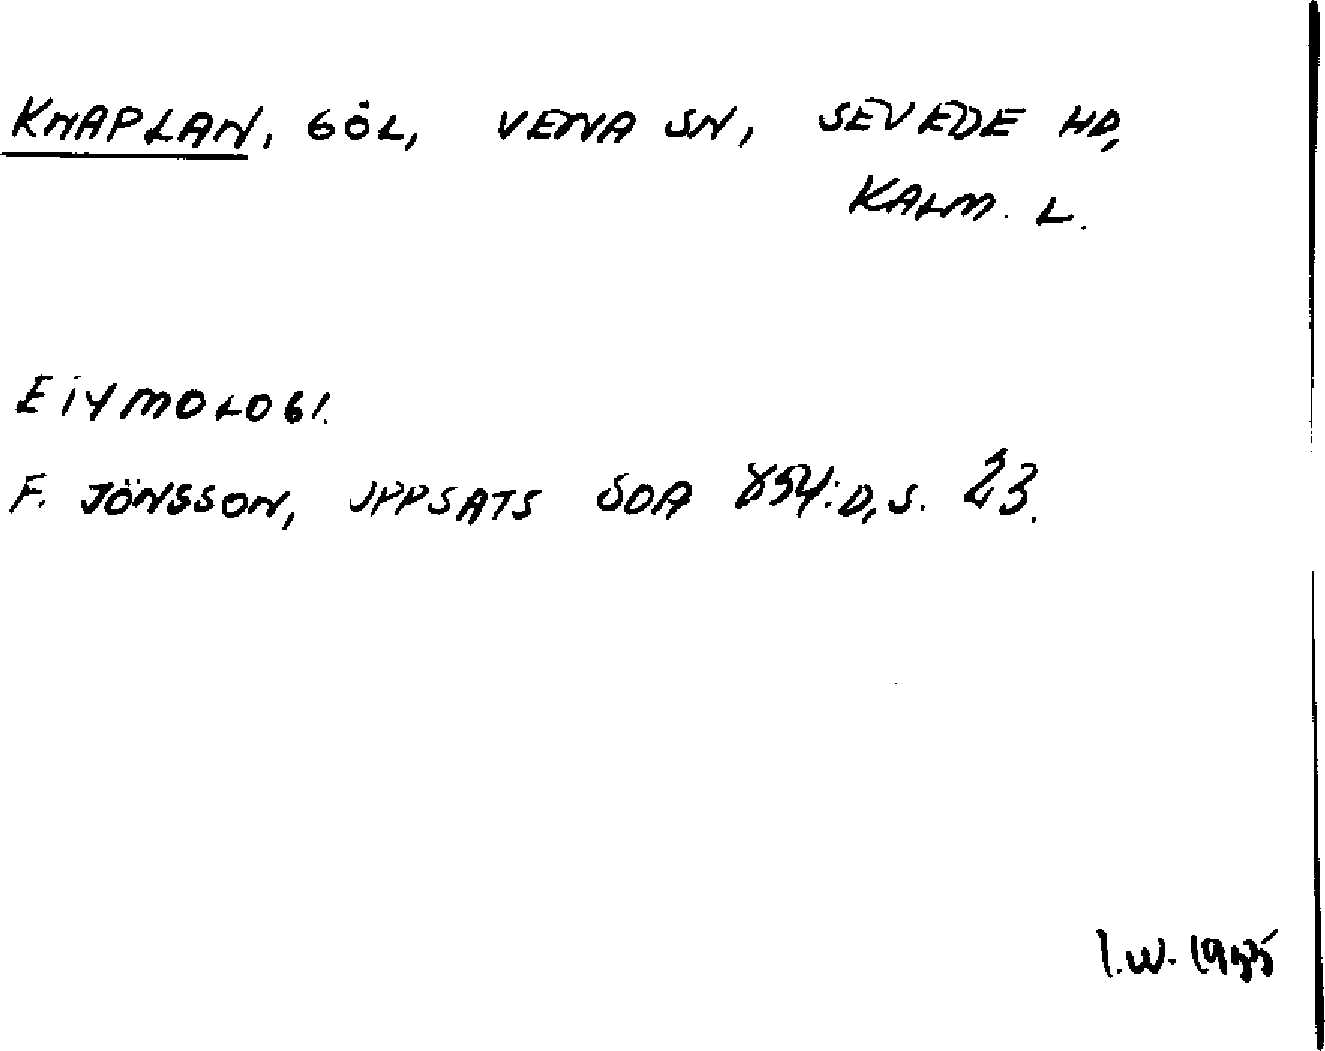 KNAPLAN, GÖL, VENA SN, SEVEDE HD,
KALM. L.
ETYMOLOGI.
F. JÖNSSON, UPPSATS SOA 854:D, S. 23.
I.W. 1955